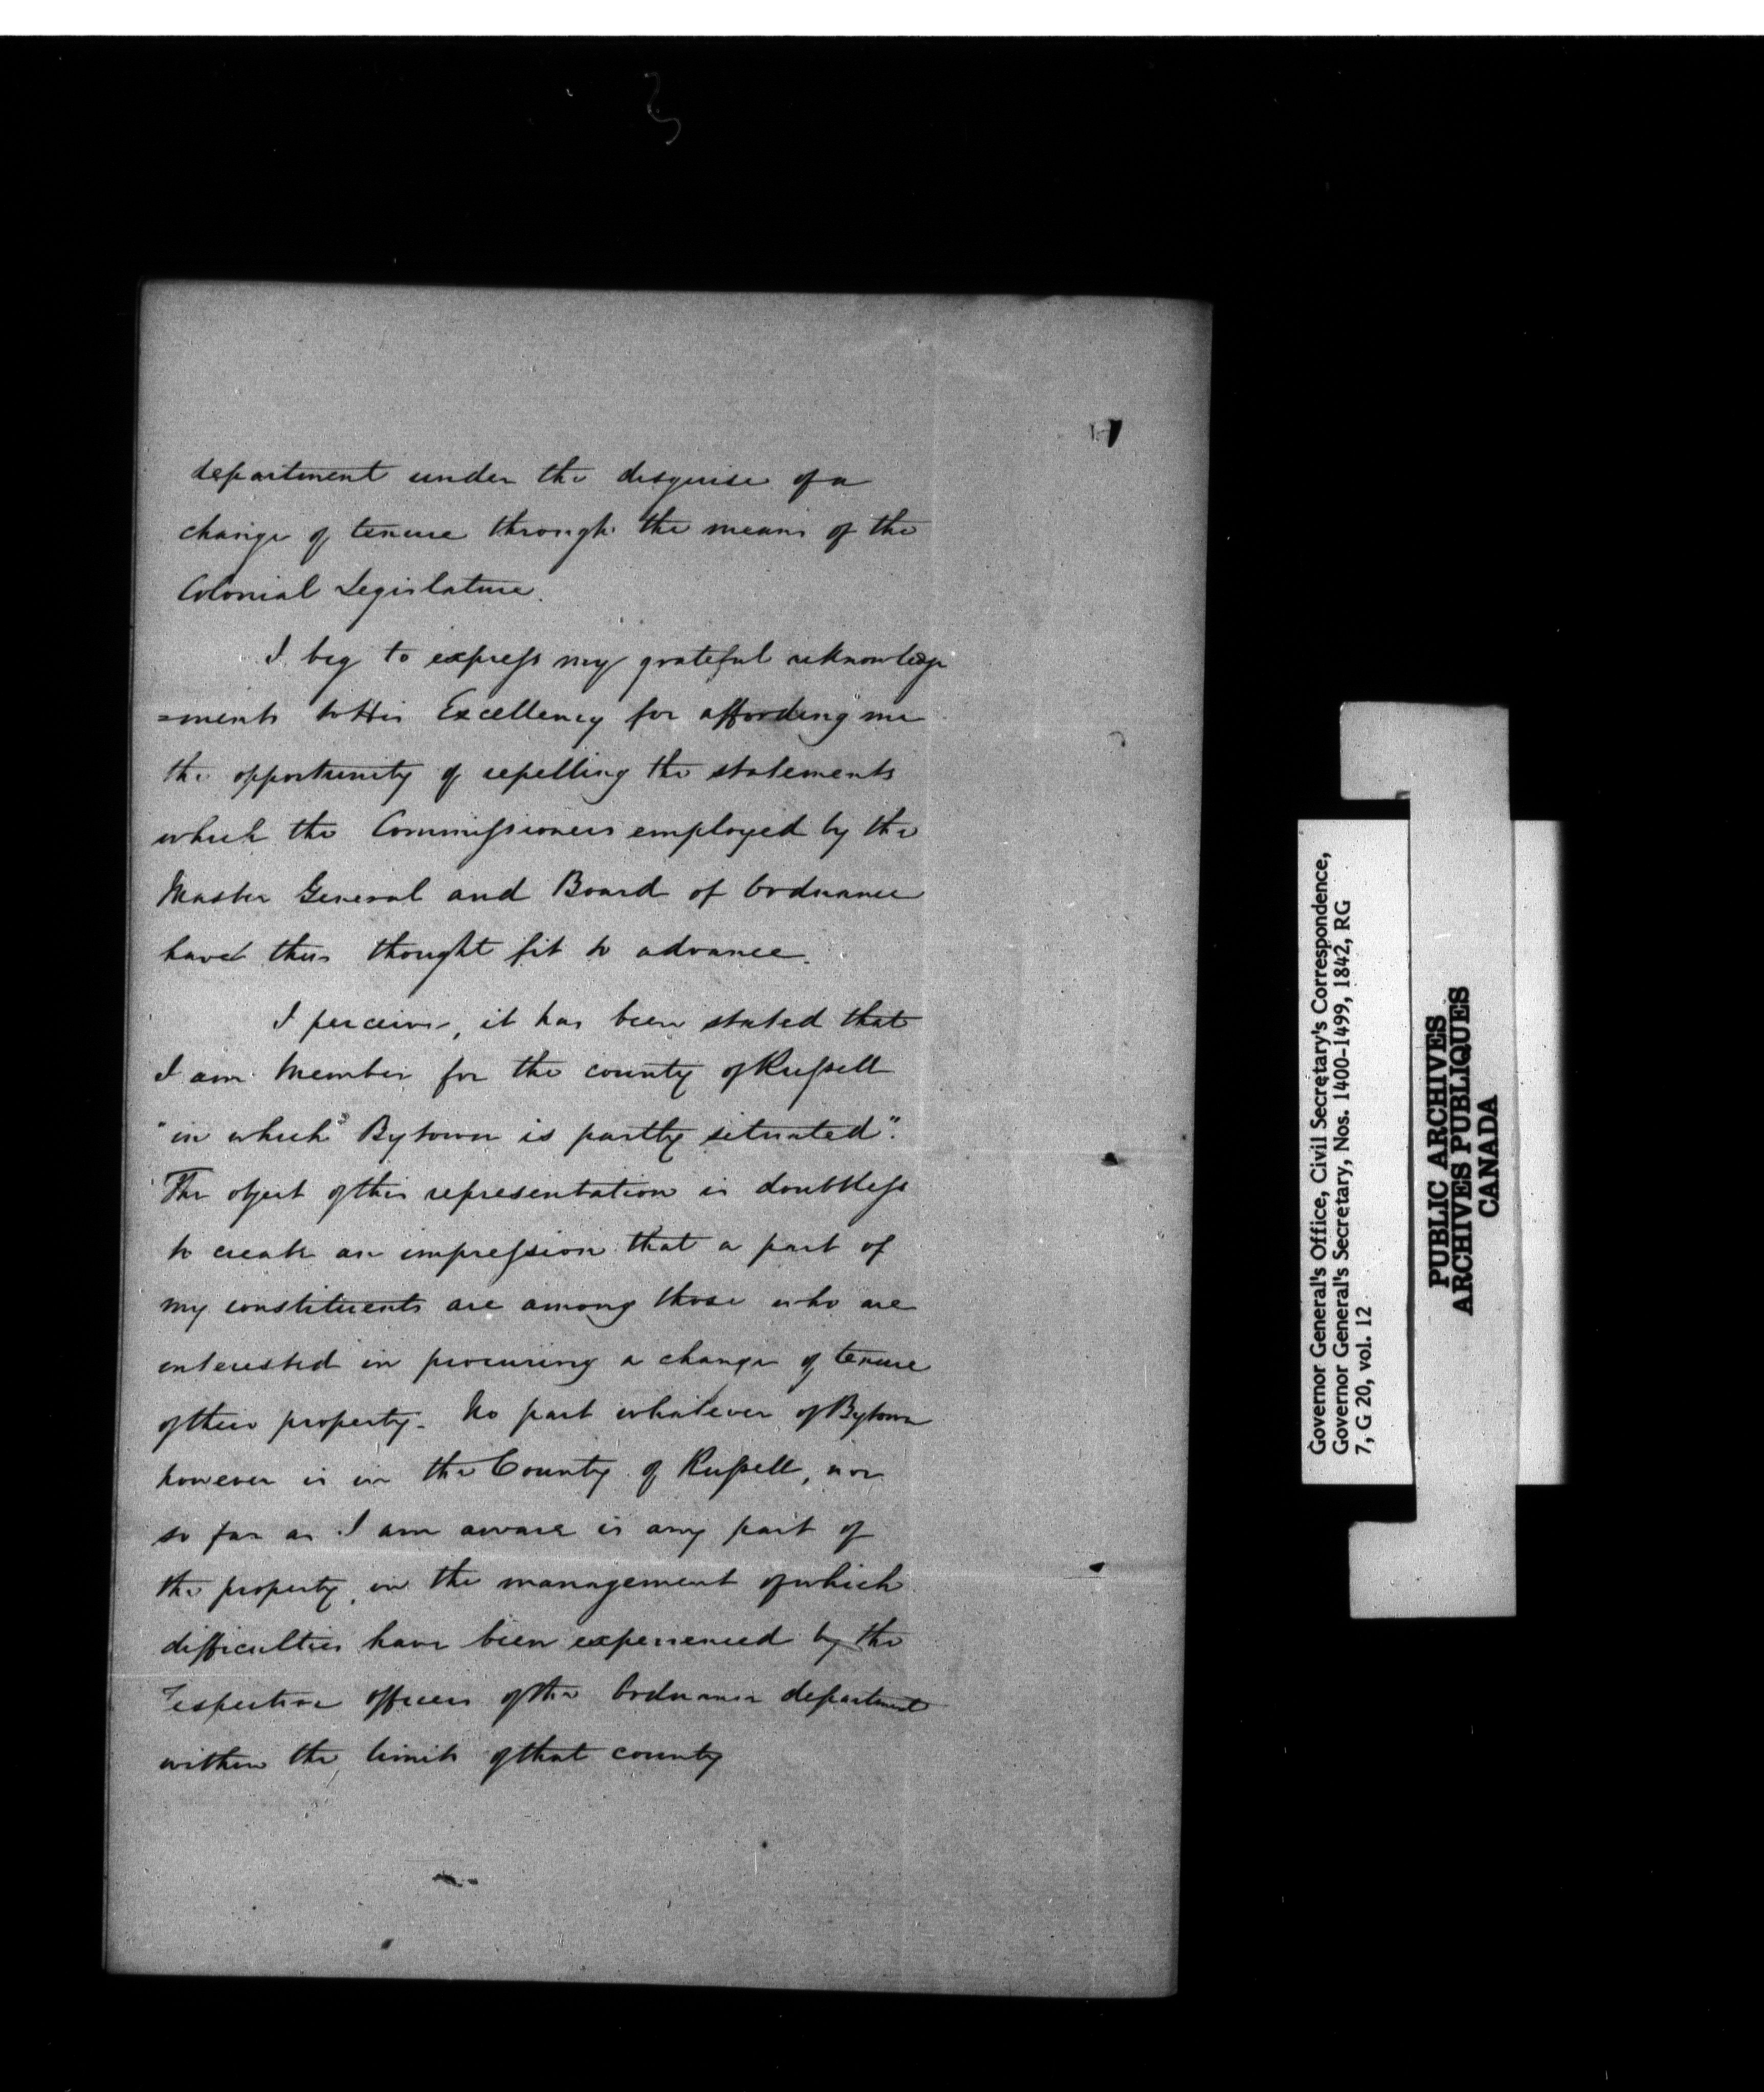 department under the disguise of a
change of tenure through the means of the
Colonial Legislature.
I beg to express my grateful acknowledge
=ments to His Excellency for affording me
the opportunity of repelling the statements
which the Commissioners employed by the
Master General and Board of Ordnance
have thus thought fit to advance.
I perceive, it has been stated that
I am Member for the county of Russell
"in which" Bytown is partly situated".
The object of this representation is doubtless
to create an impression that a part of
my constituents are among those who are
interested in procuring a change of tenure
of their property. No part whatever of Bytown
however is in the County of Russell, nor
so far as I am aware is any part of
the property, in the management of which
difficulties have been experienced by the
respective officers of the Ordnance department
within the limits of that county
Governor General's Office, Civil Secretary's Correspondence,
Governor General's Secretary, Nos. 1400-1499, 1842, RG
7, G 20, vol. 12
PUBLIC ARCHIVES
ARCHIVES PUBLIQUES
CANADA